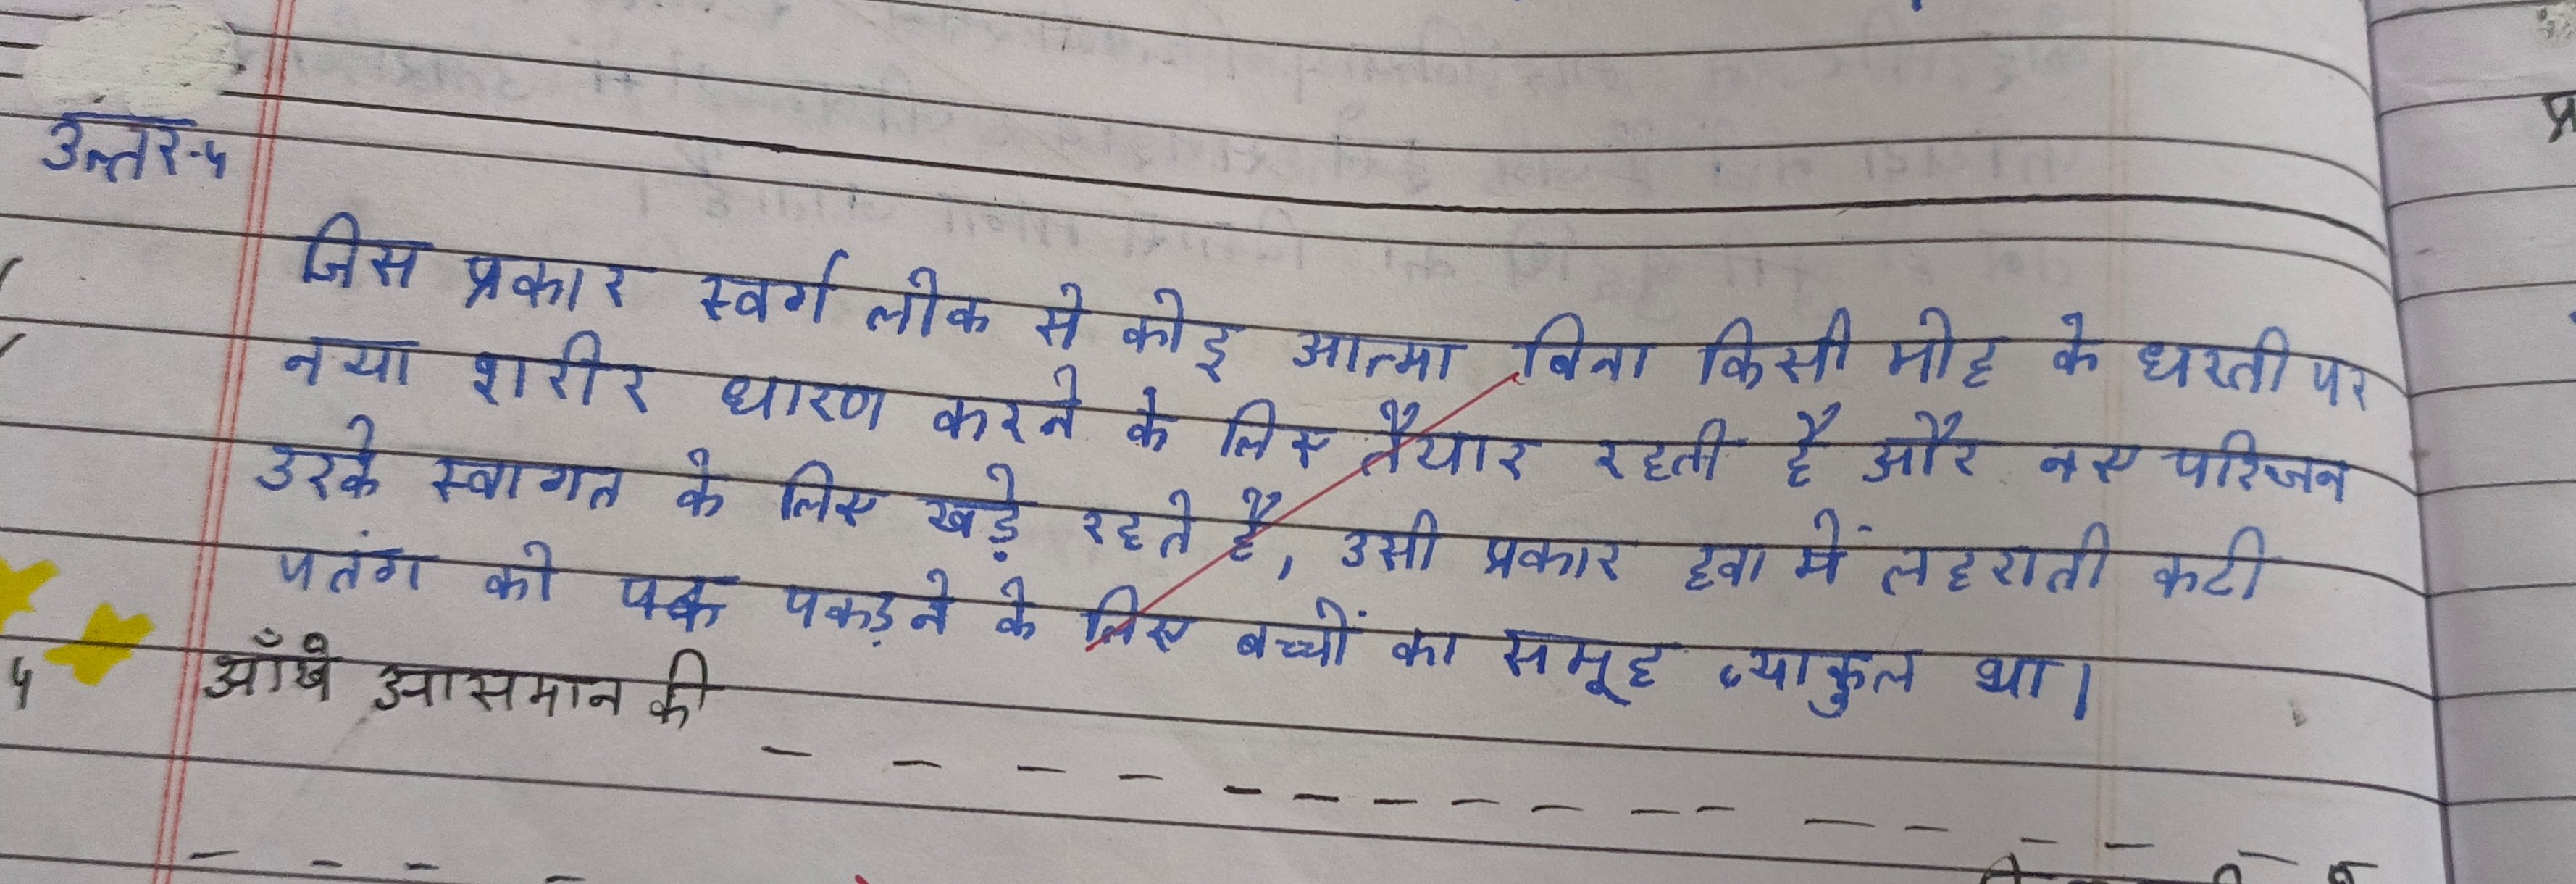 उत्तर-५
जिस प्रकार स्वर्ग लोक से कोइ आत्मा बिना किसी मोह के धरती पर
नया शरीर धारण करने के लिए तैयार रहती है और नए परिजन
उरके स्वागत के लिए खड़े रहते है, उसी प्रकार हवा में लहराती कटी
पतंग को पकड़ने के लिए बच्चों का समूह व्याकुल था।
५ आँखे आसमान की